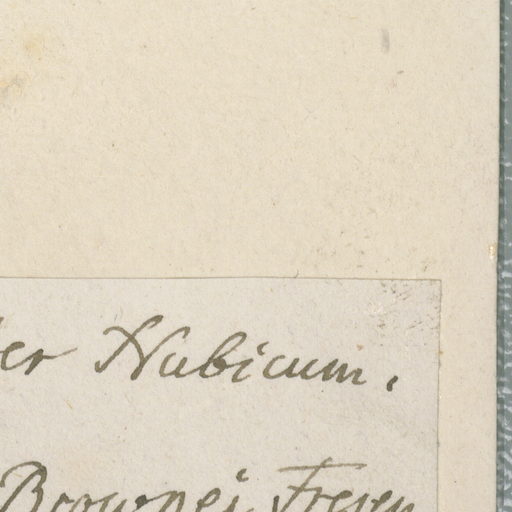 er Nubicum.
Brownei Fresen